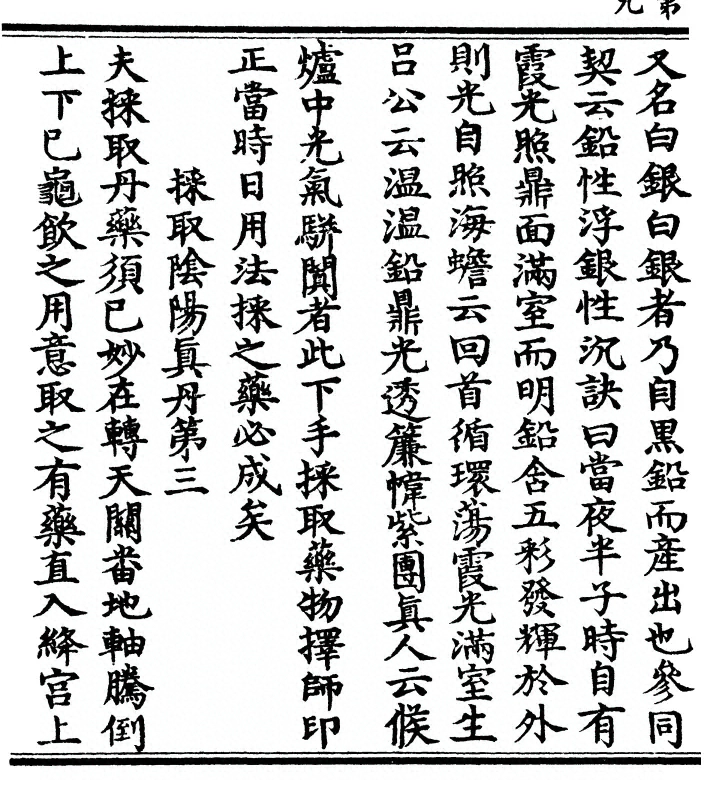 弟九
又名白銀白銀者乃自黒鉛而產出也參同
契云鉛性浮銀性沉訣曰當夜半子時自有
霞光照鼎面滿室而明鉛含五彩發輝於外
則光自照海蟾云回首循環蕩霞光滿室生
吕公云温温鉛鼎光透簾幃紫團眞人云候
爐中光氣駢闐者此下手採取藥物擇師印
正當時日用法採之藥必成矣
採取陰陽眞丹第三
夫採取丹藥須巳妙在轉天關畨地軸騰倒
上下巳龜飲之用意取之有藥直入絳宫上